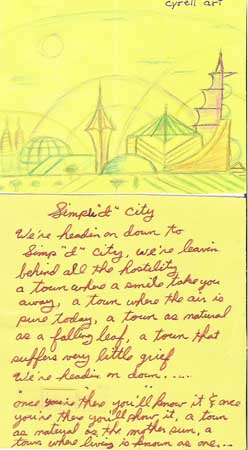 cyrell art
Simpli"d" City
We're headin on down to
Simp"d" City, we're leavin
behind all the hostility
a town where a smile take you
away, a town where the air is
pure today, a town as natural
as a falling leaf, a town that
suffers very little grief
We're headin on down.....
once you're there you'll know it &
once
you're there you'll show it, a town
as natural as the mother sun, a
town where living is known as one...